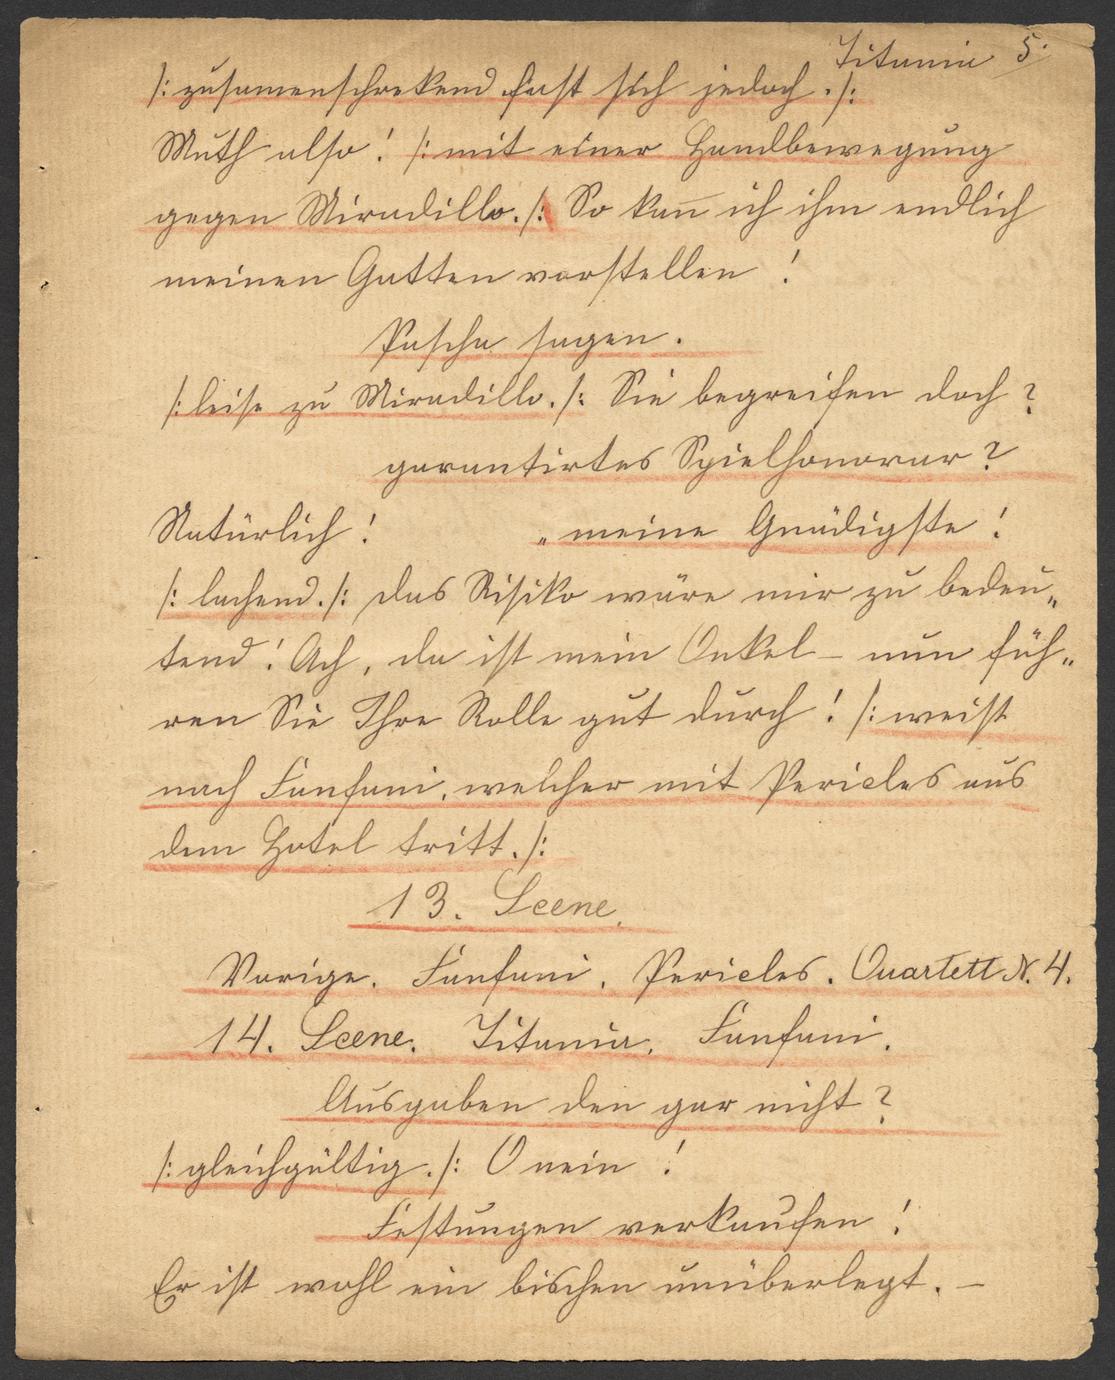 Titania 5.
/: zusamenschrekend fast sich jedoch. /:
Muth also! /: mit einer Handbewegung
gegen Miradillo. /: So kan̅ ich ihm endlich
meinen Gatten vorstellen!
Pascha sagen.
/: leise zu Miradillo. /: Sie begreifen doch?
garantirtes Spielhonorar?
Natürlich! „ meine Gnädigste!
/: lachend. /: das Risiko wäre mir zu bedeu„
tend! Ach, da ist mein Onkel – nun füh„
ren Sie Ihre Rolle gut durch! /: weist
nach Fanfani, welcher mit Pericles aus
dem Hotel tritt. /:
13. Scene.
Vorige. Fanfani. Pericles. Quartett N. 4.
14. Scene. Titania. Fanfani.
Ausgaben den gar nicht?
/: gleichgültig. /: O nein!
Festungen verkaufen!
Er ist wohl ein bischen unüberlegt. –